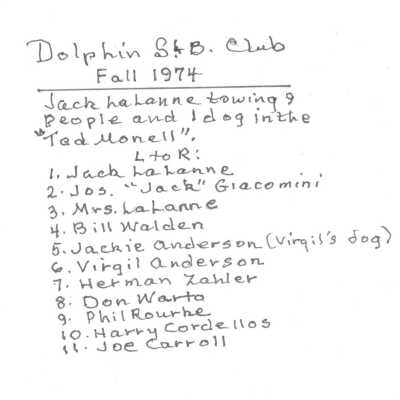 Dolphin S.&B. Club
Fall 1974
Jack LaLanne towing 9
People and 1 dog in the
"Tad Monell".
L to R:
1. Jack LaLanne
2. Jos. "Jack" Giacomini
3. Mrs. LaLanne
4. Bill Walden
5. Jackie Anderson (Virgil's dog)
6. Virgil Anderson
7. Herman Zahler
8. Don Warto
9. Phil Rourke
10. Harry Cordellos
11. Joe Carroll